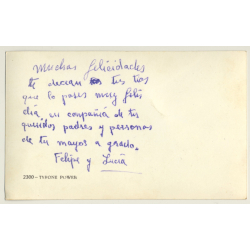 Muchas felicidades
te desean tus tios
que lo pases muy feliz
dia, en compañia de tus
queridos padres y personas
de tu mayor agrado.
Felipe y Lucía
2300 - TYRONE POWER